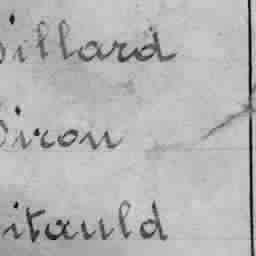 Billard
Biron
itauld